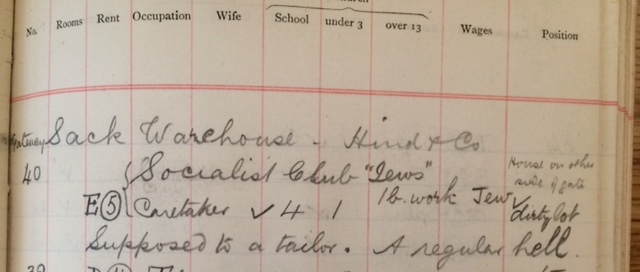 No. Rooms Rent Occupation Wife School under 3 over 13 Wages Position
Sack Warehouse - Hind & Co
40 Socialist Club "Jews" House on other
side of gate
E 5 Caretaker ✓ 4 1 1 b. work Jew ✓ dirty lot
Supposed to a tailor. A regular hell.